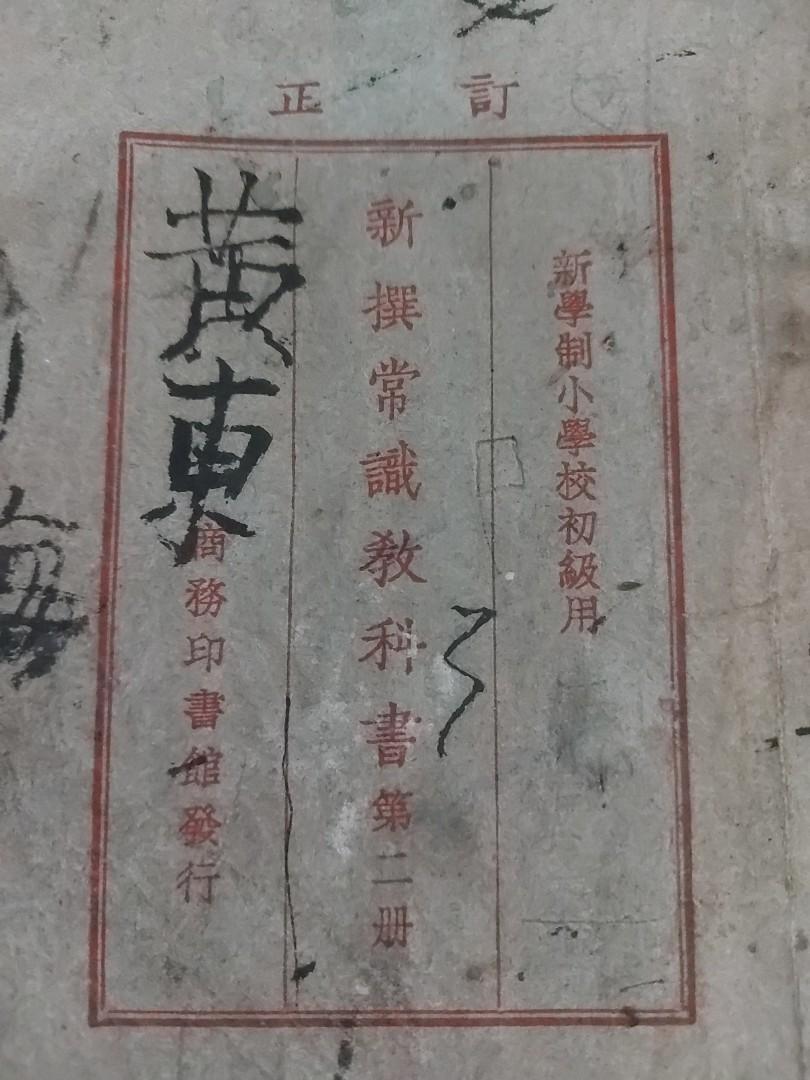 訂正
新學制小學校初級用
新撰常識教科書第二册
商務印書館發行
黃東